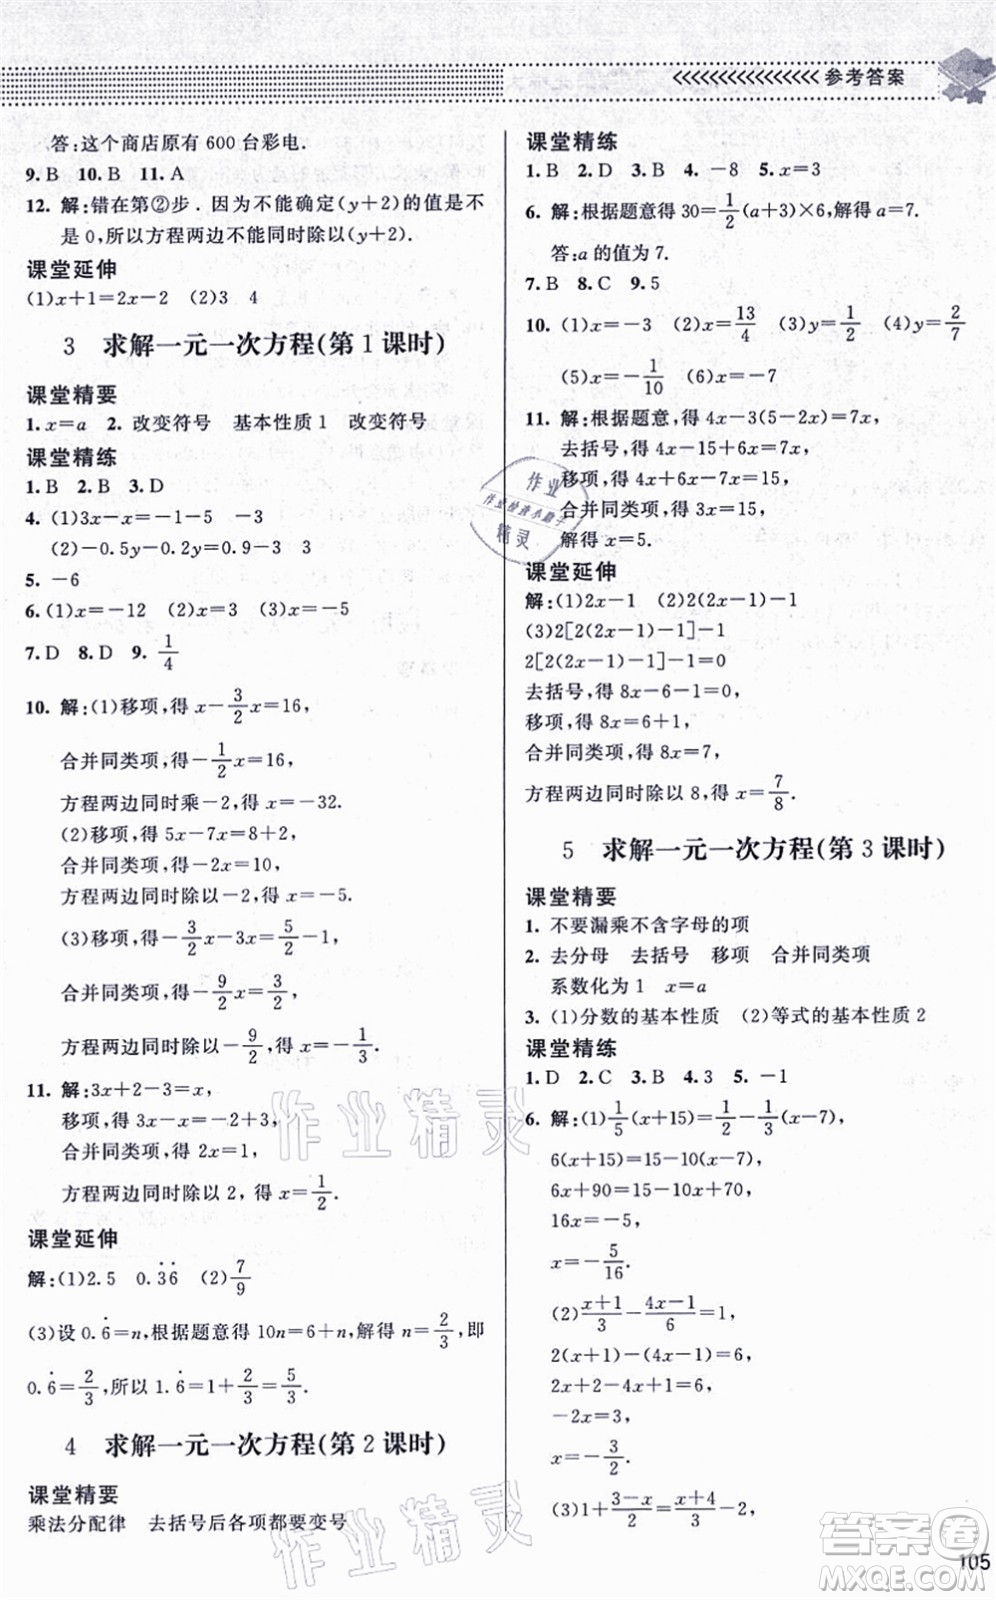 参考答案
答:这个商店原有 600 台彩电.
9. B 10. B 11. A
12. 解:错在第②步.因为不能确定(y+2)的值是不
是 0,所以方程两边不能同时除以(y+2).
课堂延伸
(1)x+1=2x-2 (2)3 4
3 求解一元一次方程(第 1 课时)
课堂精要
1. x=a 2. 改变符号 基本性质 1 改变符号
课堂精练
1. B 2. B 3. D
4. (1)3x-x=-1-5 -3
(2)-0.5y-0.2y=0.9-3 3
5. -6
6. (1)x=-12 (2)x=3 (3)x=-5
7. D 8. D 9. 1/4
10. 解:(1)移项,得 x-3/2x=16,
合并同类项,得-1/2x=16,
方程两边同时乘-2,得 x=-32.
(2)移项,得 5x-7x=8+2,
合并同类项,得-2x=10,
方程两边同时除以-2,得 x=-5.
(3)移项,得-3/2x-3x=5/2-1,
合并同类项,得-9/2x=3/2,
方程两边同时除以-9/2,得 x=-1/3.
11. 解:3x+2-3=x,
移项,得 3x-x=3-2,
合并同类项,得 2x=1,
方程两边同时除以 2,得 x=1/2.
课堂延伸
解:(1)2.5 0.3̇6̇ (2)7/9
(3)设 0.6̇=n,根据题意得 10n=6+n,解得 n=2/3,即
0.6̇=2/3,所以 1.6̇=1+2/3=5/3.
4 求解一元一次方程(第 2 课时)
课堂精要
乘法分配律 去括号后各项都要变号
课堂精练
1. B 2. D 3. B 4. -8 5. x=3
6. 解:根据题意得 30=1/2(a+3)×6,解得 a=7.
答:a 的值为 7.
7. B 8. C 9. 5
10. (1)x=-3 (2)x=13/4 (3)y=1/2 (4)y=2/7
(5)x=-1/10 (6)x=-7
11. 解:根据题意,得 4x-3(5-2x)=7x,
去括号,得 4x-15+6x=7x,
移项,得 4x+6x-7x=15,
合并同类项,得 3x=15,
解得 x=5.
课堂延伸
解:(1)2x-1 (2)2(2x-1)-1
(3)2[2(2x-1)-1]-1
2[2(2x-1)-1]-1=0
去括号,得 8x-6-1=0,
移项,得 8x=6+1,
合并同类项,得 8x=7,
方程两边同时除以 8,得 x=7/8.
5 求解一元一次方程(第 3 课时)
课堂精要
1. 不要漏乘不含字母的项
2. 去分母 去括号 移项 合并同类项
系数化为 1 x=a
3. (1)分数的基本性质 (2)等式的基本性质 2
课堂精练
1. D 2. C 3. B 4. 3 5. -1
6. 解:(1)1/5(x+15)=1/2-1/3(x-7),
6(x+15)=15-10(x-7),
6x+90=15-10x+70,
16x=-5,
x=-5/16.
(2)(x+1)/3-(4x-1)/6=1,
2(x+1)-(4x-1)=6,
2x+2-4x+1=6,
-2x=3,
x=-3/2.
(3)1+(3-x)/2=(x+4)/3-2,
105
作业
作业检查小助手
精灵
作业精灵
作业精灵
答案卷
MXQE.COM